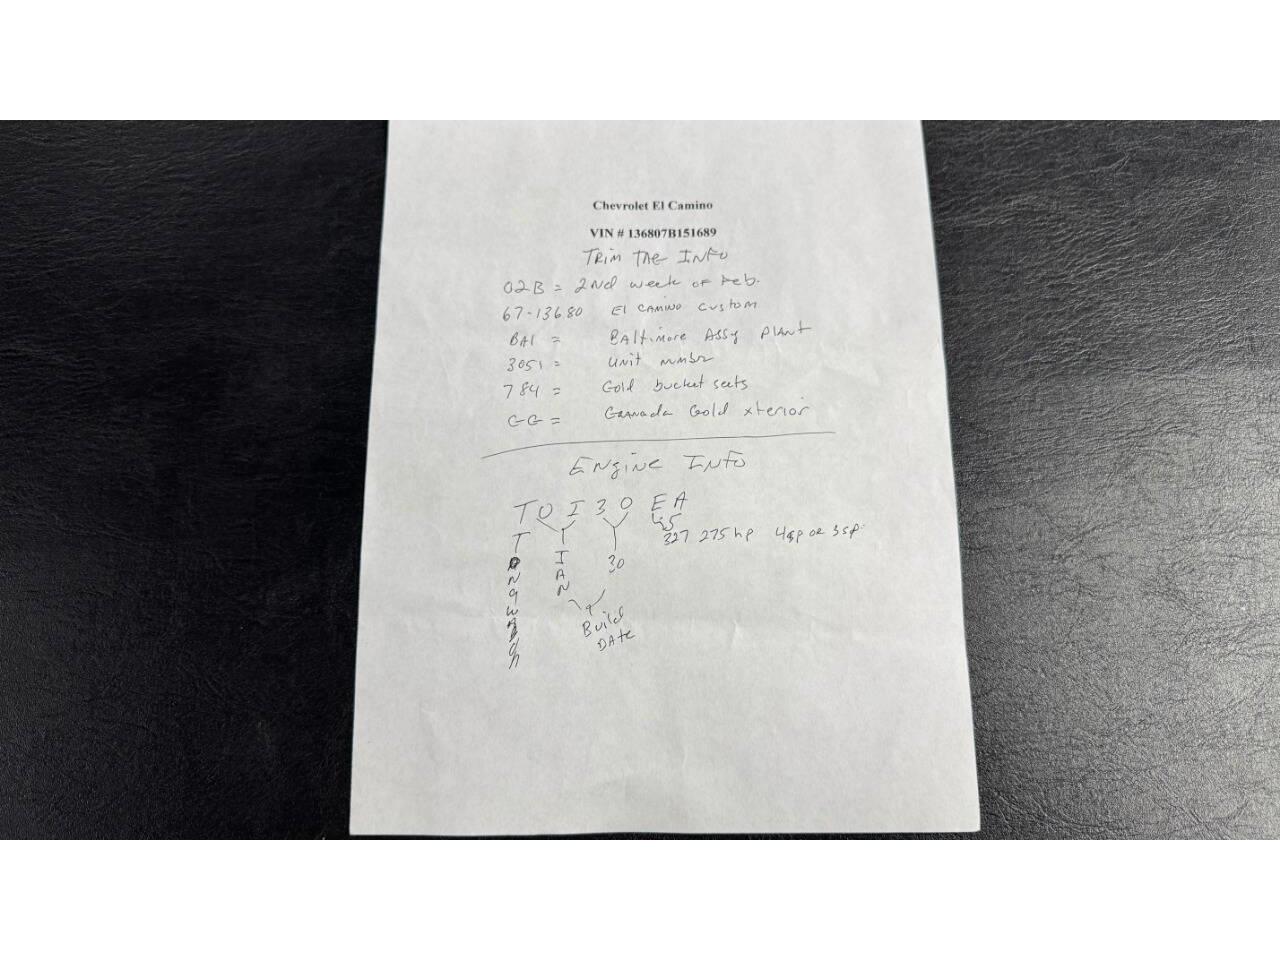 Chevrolet El Camino
VIN # 136807B151689
TRIM TAG INFO
02B = 2Nd week of Feb.
67-13680 El CAMINO CUSTOM
BAl = BAltimore ASSy PlAnt
3051 = Unit numbr
784 = Gold bucket seets
GG = GRANAdA Gold xterior
ENgiNE INFO
T 0 I 3 0 E A
327 275 hp 4sp or 3sp.
T
IAN
30
Build
DAte